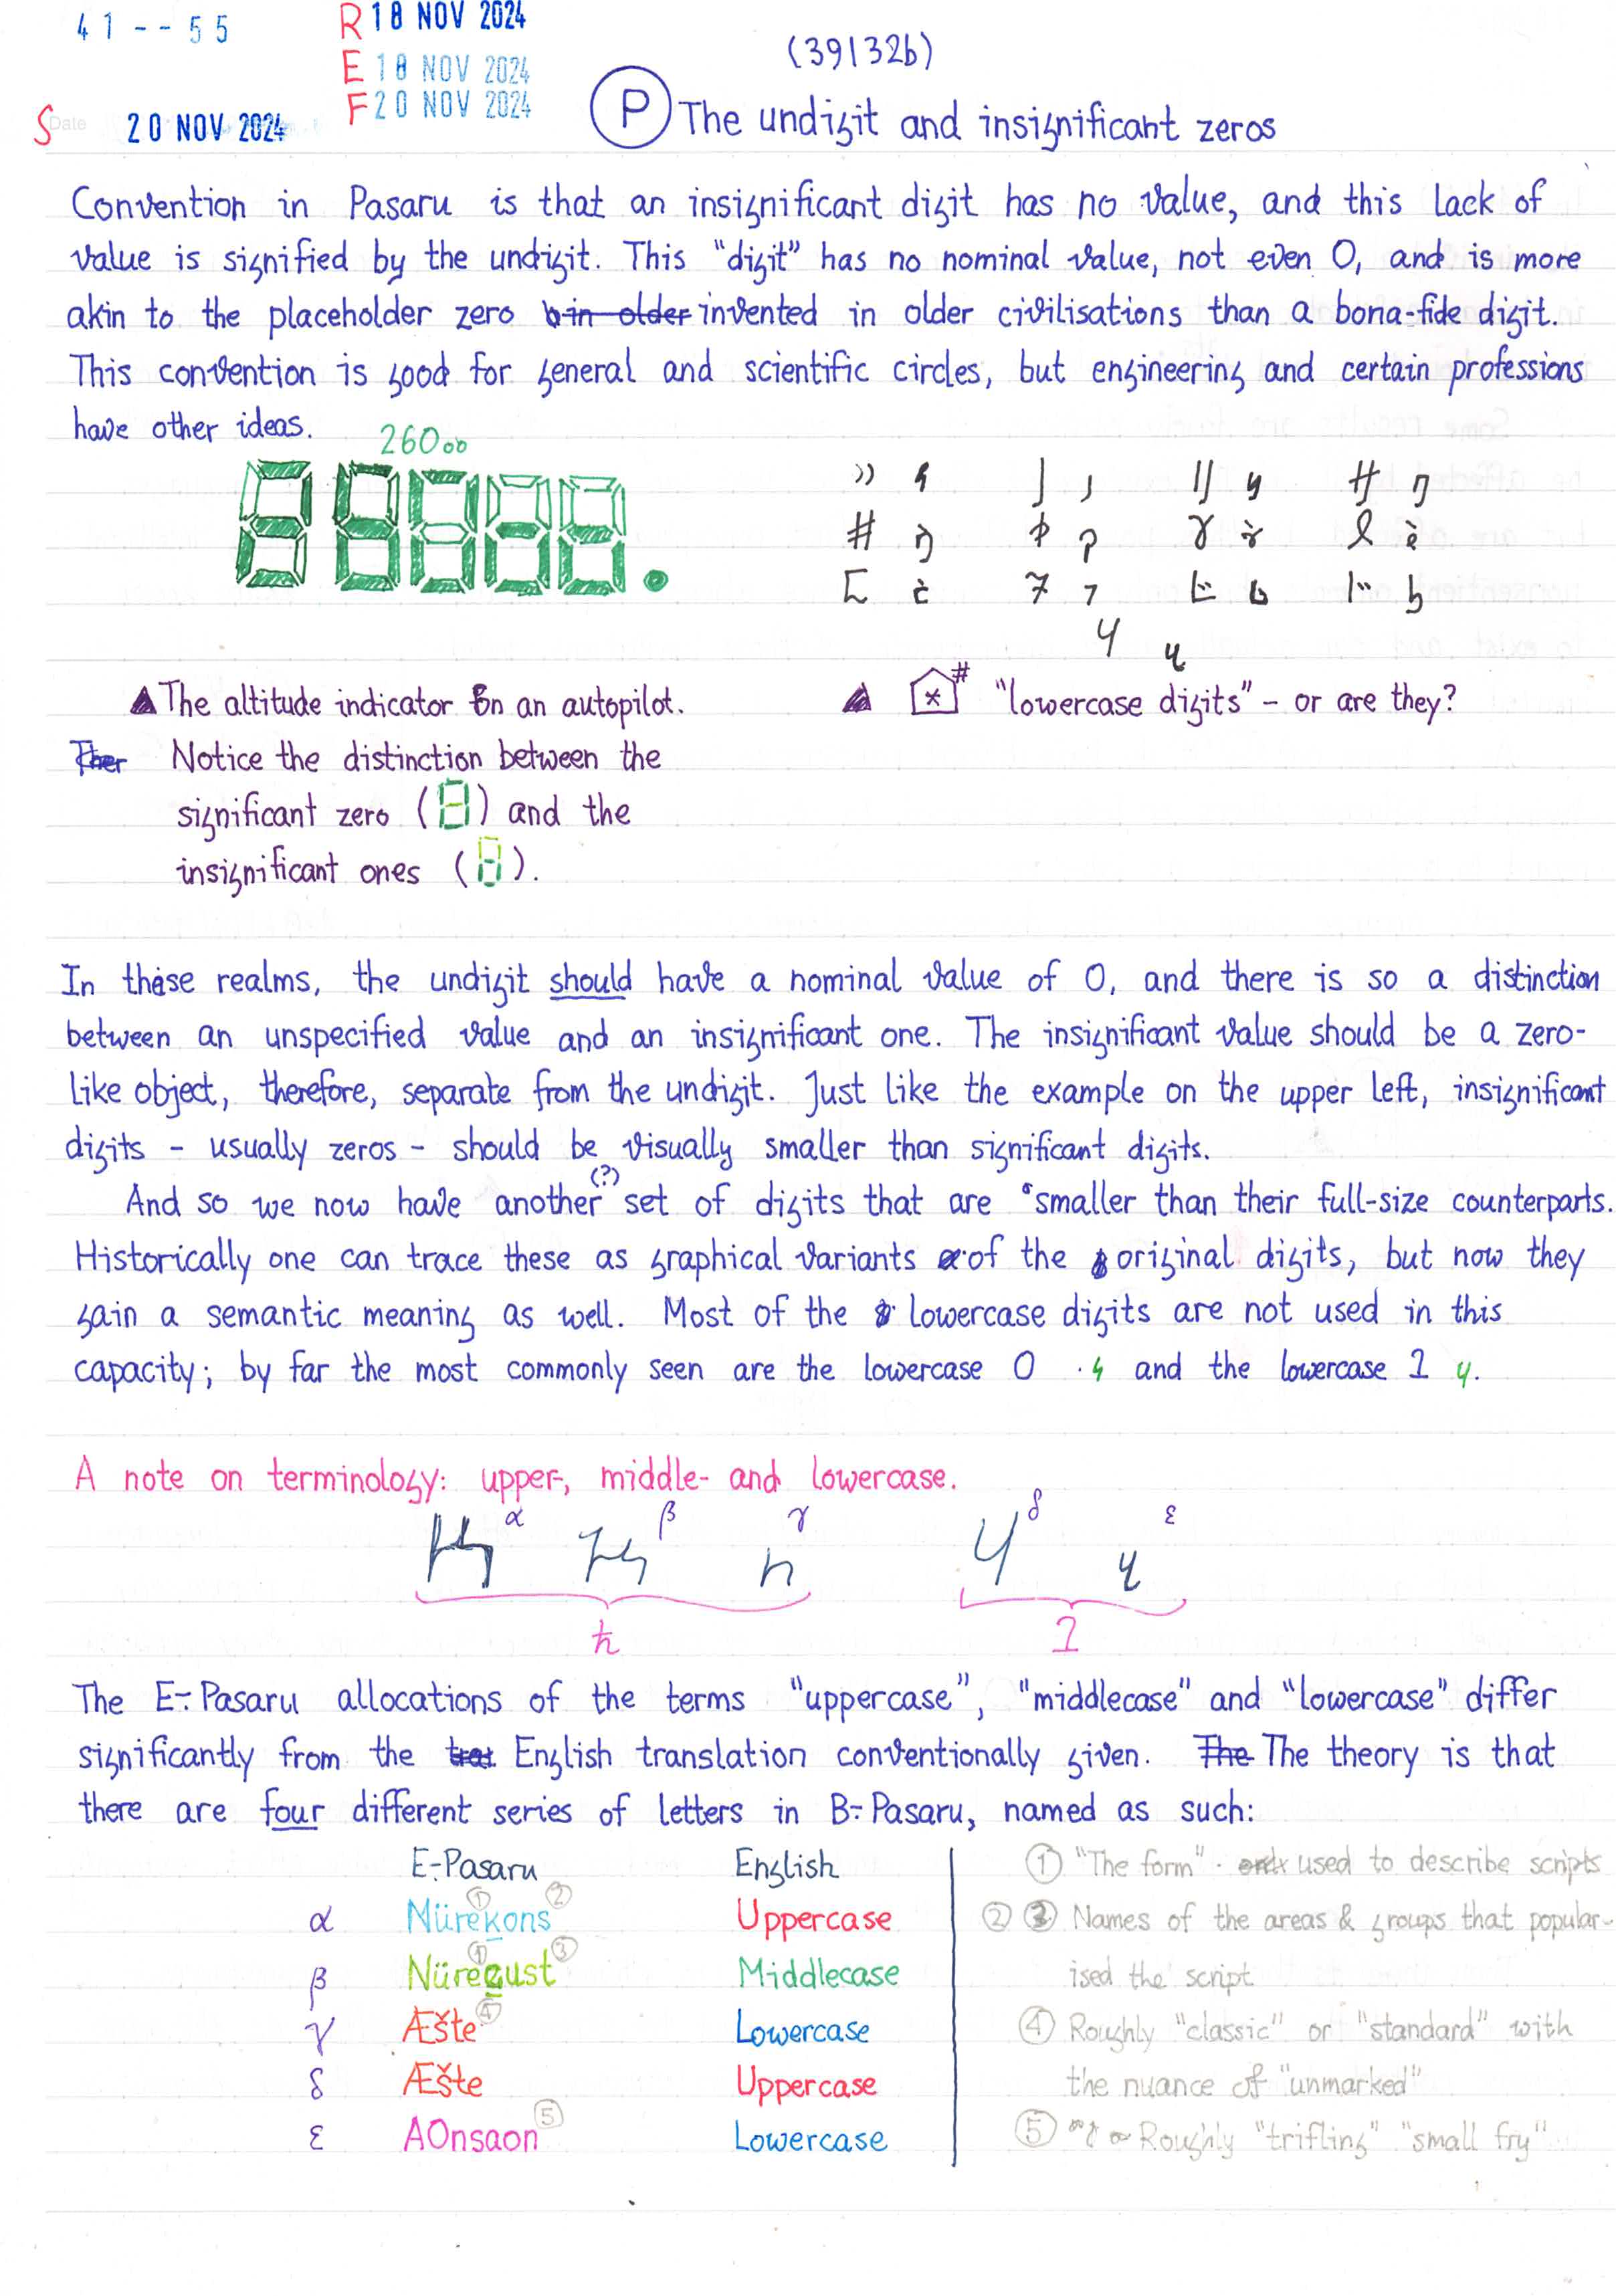 41 -- 55
R 18 NOV 2024
E 18 NOV 2024
F 20 NOV 2024
S Date 20 NOV 2024
(39132b)
P The undigit and insignificant zeros
Convention in Pasaru is that an insignificant digit has no value, and this lack of
value is signified by the undigit. This "digit" has no nominal value, not even 0, and is more
akin to the placeholder zero in older invented in older civilisations than a bona-fide digit.
This convention is good for general and scientific circles, but engineering and certain professions
have other ideas.
26000
▲ The altitude indicator on an autopilot.
Notice the distinction between the
significant zero ( ) and the
insignificant ones ( ).
▲ "lowercase digits" – or are they?
In these realms, the undigit should have a nominal value of 0, and there is so a distinction
between an unspecified value and an insignificant one. The insignificant value should be a zero-
like object, therefore, separate from the undigit. Just like the example on the upper left, insignificant
digits – usually zeros – should be visually smaller than significant digits.
And so we now have another (?) set of digits that are smaller than their full-size counterparts.
Historically one can trace these as graphical variants of the original digits, but now they
gain a semantic meaning as well. Most of the lowercase digits are not used in this
capacity; by far the most commonly seen are the lowercase 0 and the lowercase 1
A note on terminology: upper-, middle- and lowercase.
α β γ δ ε
ħ 1
The E-Pasaru allocations of the terms "uppercase", "middlecase" and "lowercase" differ
significantly from the English translation conventionally given. The The theory is that
there are four different series of letters in B-Pasaru, named as such:
E-Pasaru English
α Nürekons ① ② Uppercase
β Nüregust ① ③ Middlecase
γ Æšte ④ Lowercase
δ Æšte Uppercase
ε AOnsaon ⑤ Lowercase
① "The form" used to describe scripts
② ③ Names of the areas & groups that popular-
ised the script
④ Roughly "classic" or "standard" with
the nuance of "unmarked"
⑤ Roughly "trifling" "small fry"